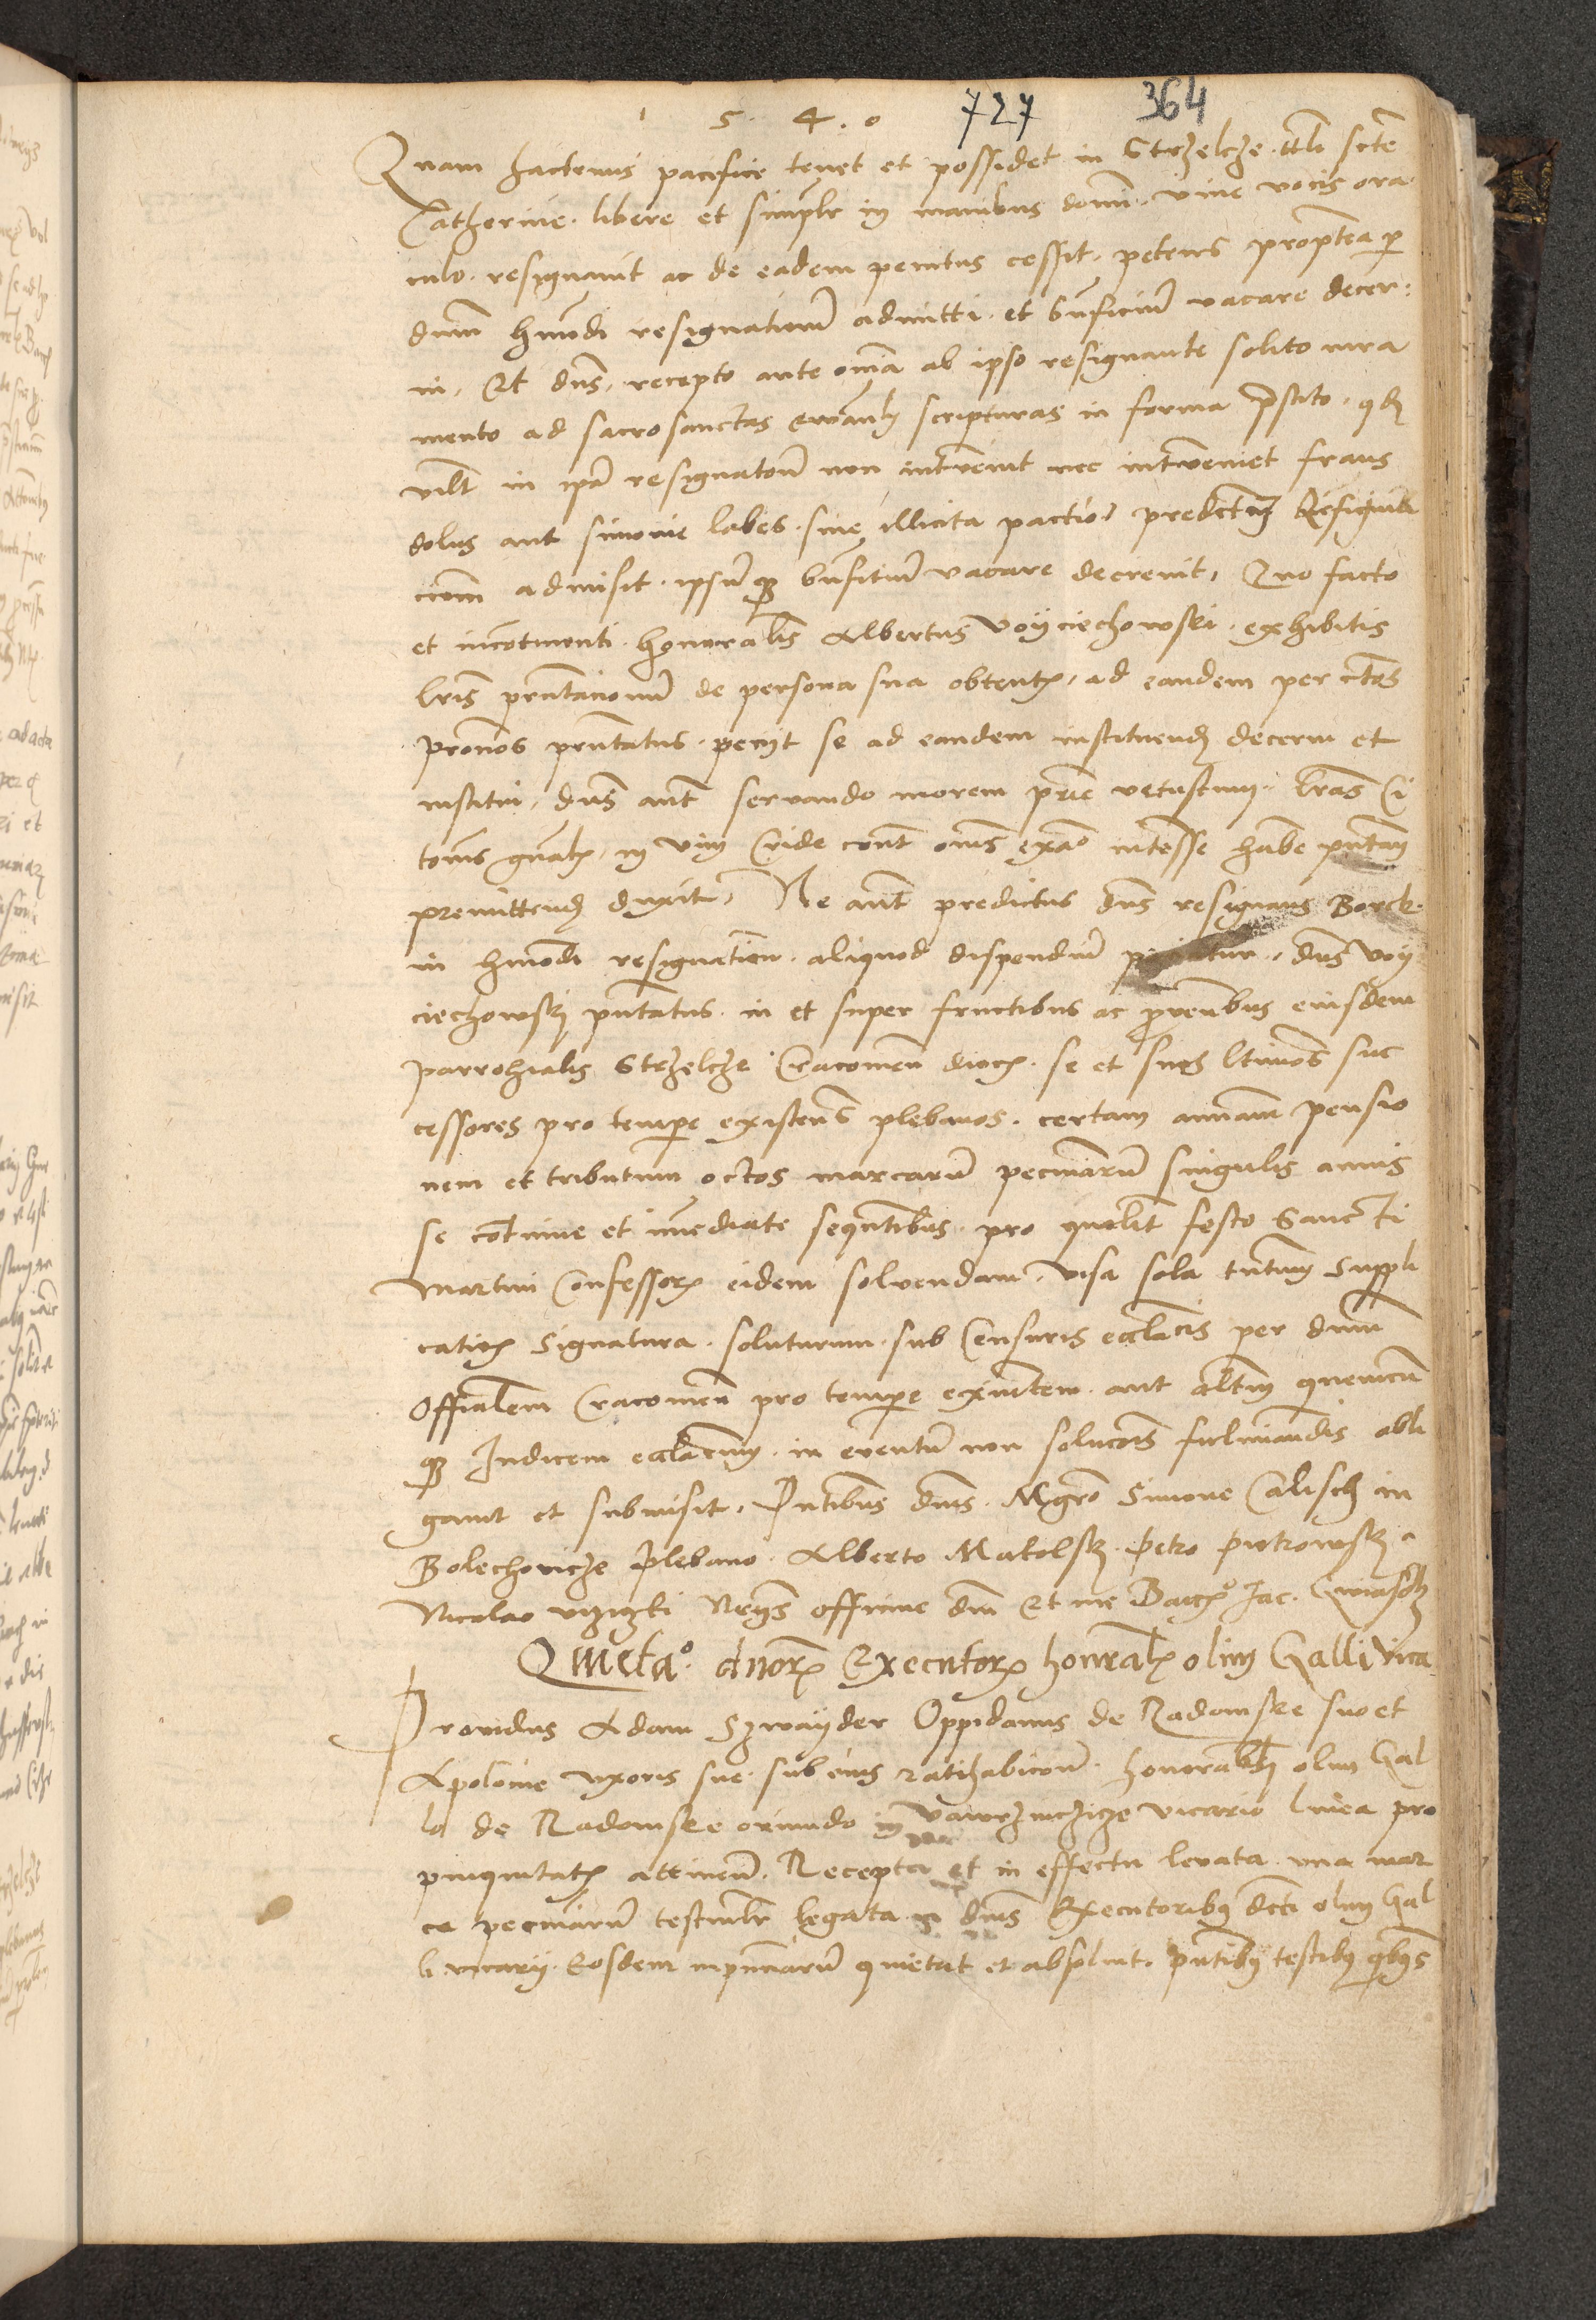 1 5 · 4 · 0 727 364
Quam hactenus pacifice tenet et possidet in Strzelcze ttli scte
Catherine · libere et simplr in manibus domi · vive vocis ora
culo · resignavit ac de eadem penitus cessit · petens proptea p
dnum hmodi resignationem admitti · et bnficium vacare decer:
ni · Et dns · recepto ante omia ab ipso resignante solito iura
mento ad sacrosanctas ewanly scripturas in forma prestito · qd
videlt in ipsa resignatione non intervenit nec interveniet fraus
dolus aut simonie labes · sive illicita pactio predictam Resigna
cionem admisit · ipsumque bnfitium vacare decrevit · Quo facto
et incontinenti · honorabilis Albertus Voyciechowski · exhibitis
lris prntacionum de persona sua obtentis, ad eandem per ctos
pronos prntatus · petiit se ad eandem instituendum decerni et
institui · dns aut servando morem prie vetustum · lras Ci
tonis gnalis · in vim Cride cont omes exa interesse habe pntan
premittendum duxit · Ne aut predictus dns resignans Borek ·
in hmodi resignatione · aliquod dispendium patiatur · dns Voy
ciechowski pntatus · in et super fructibus ac proventibus eiusdem
parrohialis Strzelcze Cracovien dioc · se et suos ltimos suc
cessores pro tempore existens plebanos · certam annuam pensio
nem et tributum octo marcarum pecuniarum singulis annis
se continue et immediate sequentibus · pro quolibet festo Sancti
Martini Confessoris eidem solvendam · visa sola tantum Suppli
cationis Signatura · soluturum · sub Censuris ecclacis per dnum
Offialem Cracovien pro tempore existentem · aut alium quemcun
que Iudicem ecclasticum · in eventum non solucois fulminandis obli
gavit et submisit · Pntibus dnis · Mgro Simone Calisch in
Bolechovicze Plebano · Alberto Makolski · Petro Piotrowski ·
Nicolao Notrys officine dni Et me Iac ·
Quieta° dnorum Executorum honorabilis olim Galli Vica
Providus Adam Szwayder Oppidanus de Radomske suo et
Apolonie uxoris sue · sub eius ratihabicone · honorabili olim Gal
lo de Radomske oriundo in Vawrzinczicze vicario linea pro
pinquitatis attinen · Recepta et in effectu levata una mar
ca pecuniarum testmlr legata · dnis Executoribus dcti olim Gal
li vicarii · Eosdem quietat et absolvit · Pntibus testibus